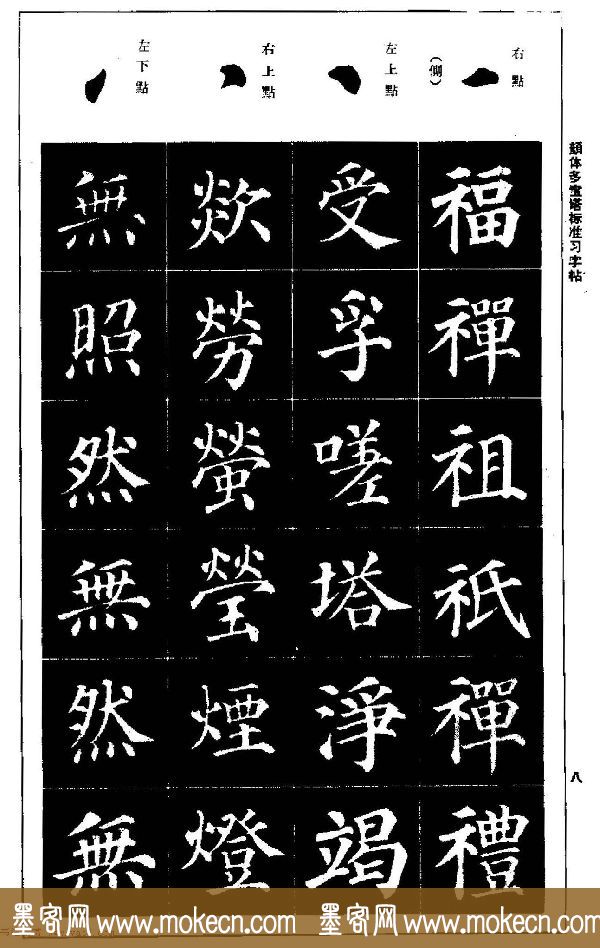 顏体多寶塔标准习字帖
八
右點
（側）
福禪祖祇禪禮
左上點
受孚嗟塔淨竭
右上點
欻勞螢瑩煙燈
左下點
無照然無然無
墨客网 www.mokecn.com 墨客网 www.mokecn.com